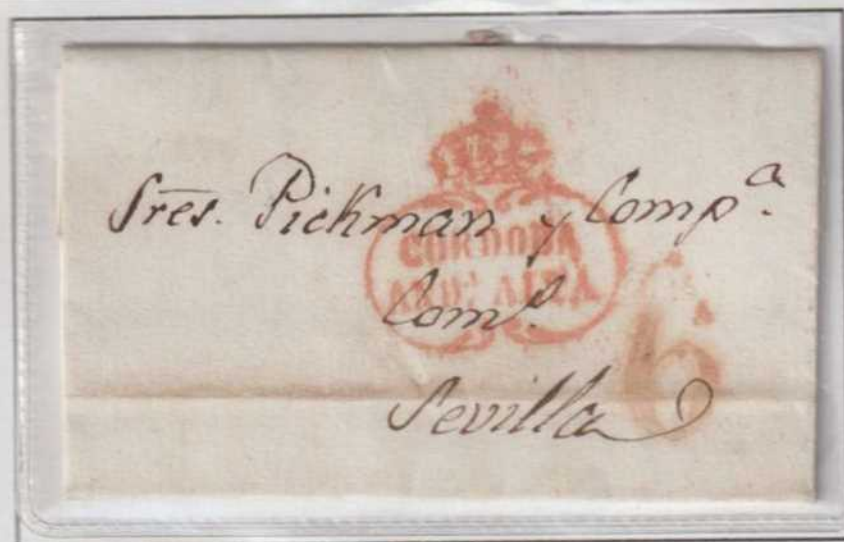 Sres. Pickman y Compª.
CORDOBA
ANDª. ALTA
Comº.
6
Sevilla